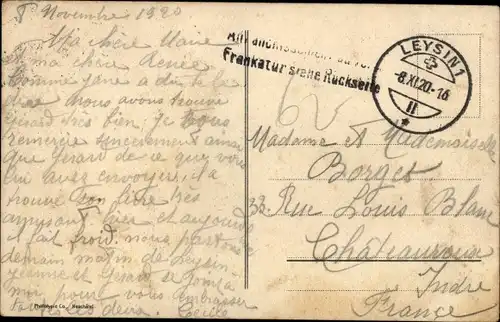 8 Novembre 1920
Ma chère Marie
et ma chère Renée
Comme Jane a dû te le
dire nous avons trouvé
Gérard très bien je vous
remercie sincèrement ainsi
que Gérard de ce que vous
lui avez envoyer, il a
trouvé son livre très
amusant. hier et aujourd
il fait froid. nous partons
demain matin de Leysin
Jeanne et Gérard se joigne à
moi pour vous embrasser
toutes les deux. Cécile
Affranchissement au verso
Frankatur siehe Rückseite
LEYSIN 1
-8.XI.20-16
II
Madame et Mademoiselle
Borget
33 Rue Louis Blanc
Châteauroux
Indre
France